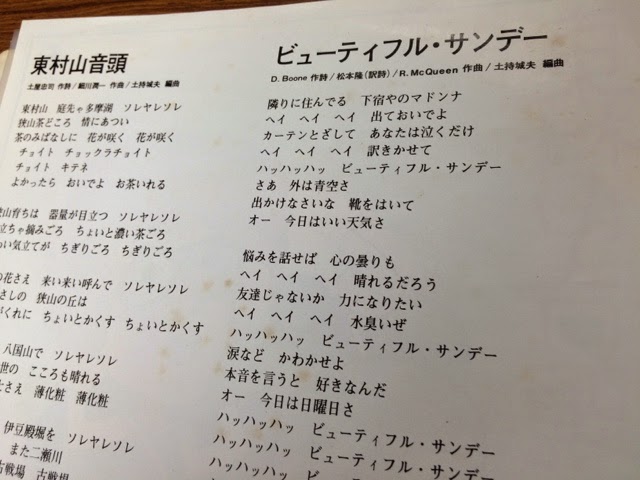 東村山音頭
土屋忠司 作詩/細川潤一 作曲/土持城夫 編曲
東村山 庭先ゃ多摩湖 ソレヤレソレ
狭山茶どころ 情にあつい
茶のみばなしに 花が咲く 花が咲く
チョイト チョックラチョイト
チョイト キテネ
よかったら おいでよ お茶いれる
山育ちは 器量が目立つ ソレヤレソレ
立ちゃ摘みごろ ちょいと濃い茶ごろ
い気立てが ちぎりごろ ちぎりごろ
の花さえ 来い来い呼んで ソレヤレソレ
さしの 狭山の丘は
がくれに ちょいとかくす ちょいとかくす
八国山で ソレヤレソレ
世の こころも晴れる
さえ 薄化粧 薄化粧
伊豆殿堀を ソレヤレソレ
また二瀬川
古戦場 古戦場
ビューティフル・サンデー
D. Boone 作詩/松本隆(訳詩)/R. McQueen 作曲/土持城夫 編曲
隣りに住んでる 下宿やのマドンナ
ヘイ ヘイ ヘイ 出ておいでよ
カーテンとざして あなたは泣くだけ
ヘイ ヘイ ヘイ 訳きかせて
ハッハッハッ ビューティフル・サンデー
さあ 外は青空さ
出かけなさいな 靴をはいて
オー 今日はいい天気さ
悩みを話せば 心の曇りも
ヘイ ヘイ ヘイ 晴れるだろう
友達じゃないか 力になりたい
ヘイ ヘイ ヘイ 水臭いぜ
ハッハッハッ ビューティフル・サンデー
涙など かわかせよ
本音を言うと 好きなんだ
オー 今日は日曜日さ
ハッハッハッ ビューティフル・サンデー
ハッハッハッ ビューティフル・サンデー
ハッハッハッ ビューティフル・サンデー